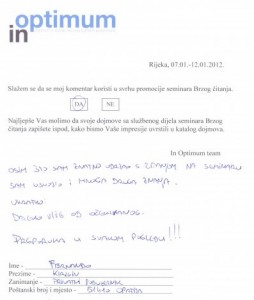 optimum
in
Rijeka, 07.01.-12.01.2012.
Slažem se da se moj komentar koristi u svrhu promocije seminara Brzog čitanja.
DA NE
Najljepše Vas molimo da svoje dojmove sa službenog dijela seminara Brzog
čitanja zapišete ispod, kako bismo Vaše impresije uvrstili u katalog dojmova.
In Optimum team
OSIM ŠTO SAM ZNATNO UBRZAO S ČITANJEM NA SEMINARU
SAM USVOJIO I MNOGA DRUGA ZNANJA.
UKRATKO
DOBIO VIŠE OD OČEKIVANOG.
PREPORUKA U SVAKOM POGLEDU!!!
Ime -
Prezime -
Zanimanje - PRIVATNI
Poštanski broj i mjesto - 51410 OPATIJA